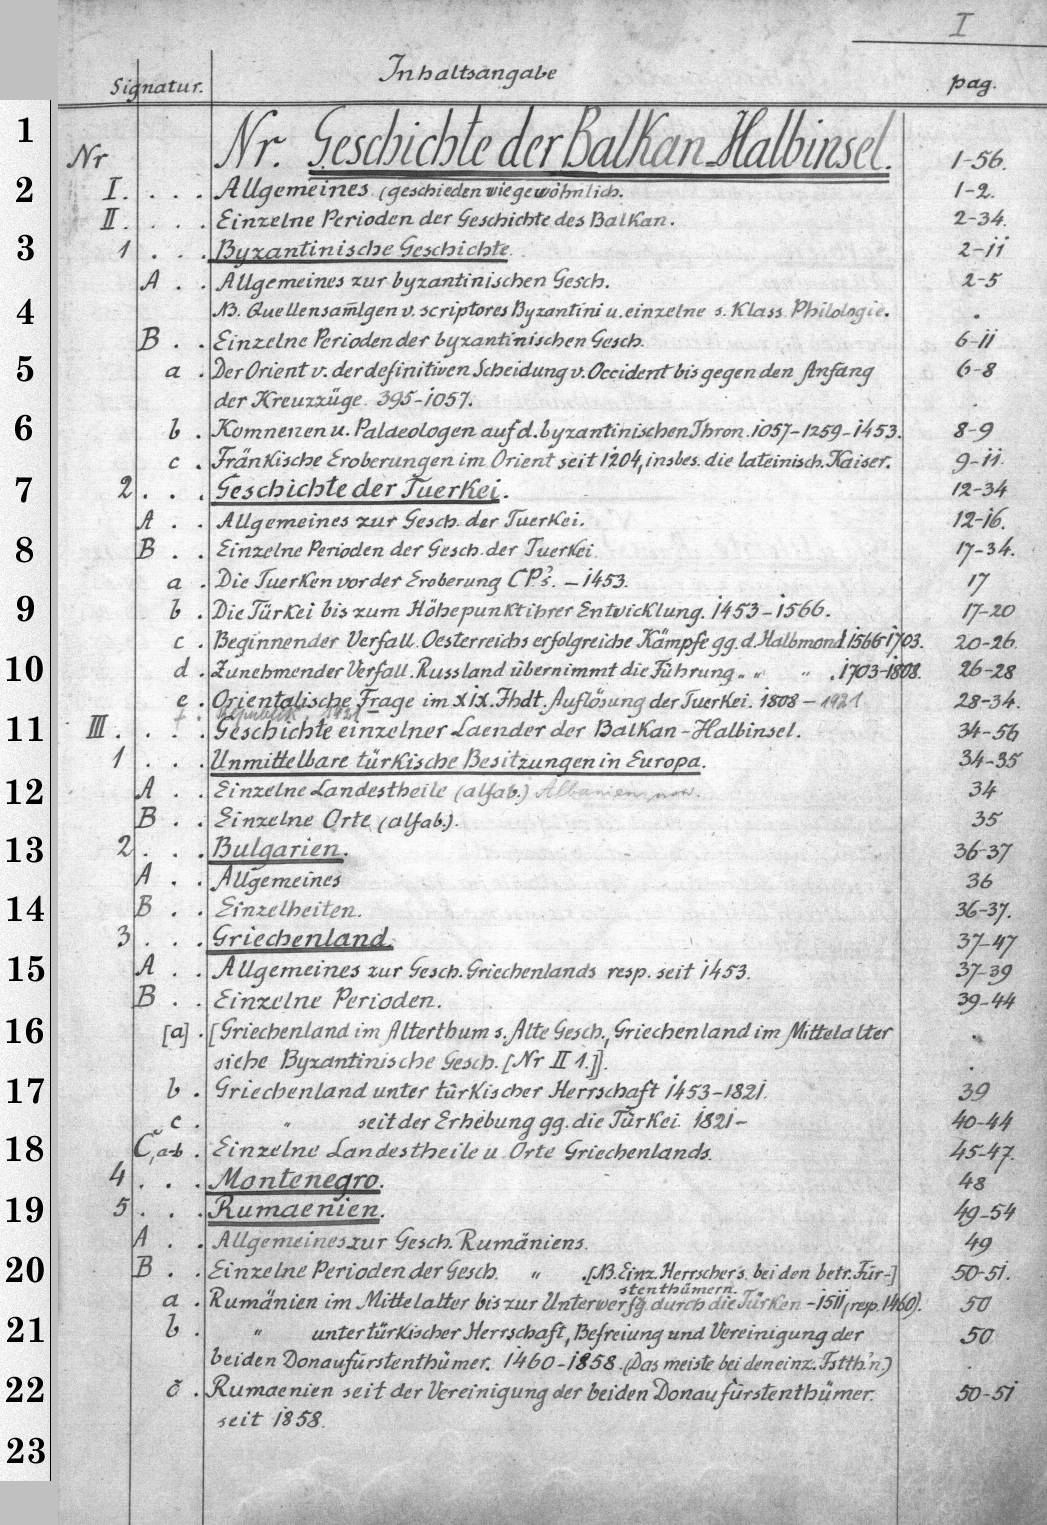 I
Signatur. Inhaltsangabe pag.
1
Nr Nr. Geschichte der Balkan-Halbinsel. 1-56.
2 I. . . . Allgemeines (geschieden wie gewöhnlich. 1-2.
II. . . . Einzelne Perioden der Geschichte des Balkan. 2-34.
3 1 . . . Byzantinische Geschichte. 2-11
A . . Allgemeines zur byzantinischen Gesch. 2-5
4 NB. Quellensam̅lgen v. scriptores Byzantini u. einzelne s. Klass. Philologie. .
B . . Einzelne Perioden der byzantinischen Gesch. 6-11
5 a . Der Orient v. der definitiven Scheidung v. Occident bis gegen den Anfang 6-8
der Kreuzzüge. 395-1057. .
6 b . Komnenen u. Palaeologen auf d. byzantinischen Thron. 1057-1259-1453. 8-9
c . Fränkische Eroberungen im Orient seit 1204, insbes. die lateinisch. Kaiser. 9-11.
7 2. . . Geschichte der Tuerkei. 12-34
A . . Allgemeines zur Gesch. der Tuerkei. 12-16.
8 B . . Einzelne Perioden der Gesch. der Tuerkei. 17-34.
a . Die Tuerken vor der Eroberung CP's. -1453. 17
9 b . Die Türkei bis zum Höhepunkt ihrer Entwicklung. 1453-1566. 17-20
c . Beginnender Verfall. Oesterreichs erfolgreiche Kämpfe gg. d. Halbmond. 1566-1703. 20-26.
10 d . Zunehmender Verfall. Russland übernimmt die Führung „ „ „ . 1703-1808. 26-28
e . Orientalische Frage im XIX. Jhdt. Auflösung der Tuerkei. 1808 - 1921 28-34.
f. Republik. 1921 -
11 III . . . . Geschichte einzelner Laender der Balkan-Halbinsel. 34-56
1 . . . Unmittelbare türkische Besitzungen in Europa. 34-35
12 A . . Einzelne Landestheile (alfab.) Albanien 34
B . . Einzelne Orte (alfab.). 35
13 2. . . Bulgarien. 36-37
A . . Allgemeines 36
14 B . . Einzelheiten. 36-37.
3 . . . Griechenland. 37-47
15 A . . Allgemeines zur Gesch. Griechenlands resp. seit 1453. 37-39
B . . Einzelne Perioden. 39-44
16 [a] . [Griechenland im Alterthum s. Alte Gesch., Griechenland im Mittelalter .
siehe Byzantinische Gesch. [Nr II 1.]]. .
17 b . Griechenland unter türkischer Herrschaft 1453-1821. 39
c . „ seit der Erhebung gg. die Türkei. 1821- 40-44
18 C, a-b . Einzelne Landestheile u. Orte Griechenlands. 45-47.
4 . . . Montenegro. 48
19 5 . . . Rumaenien. 49-54
A . . Allgemeines zur Gesch. Rumäniens. 49
20 B . . Einzelne Perioden der Gesch. „ .[NB. Einz. Herrscher s. bei den betr. Für-] 50-51.
stenthümern.
a . Rumänien im Mittelalter bis zur Unterwerfg. durch die Türken -1511 (resp. 1460). 50
21 b . „ unter türkischer Herrschaft, Befreiung und Vereinigung der 50
beiden Donaufürstenthümer. 1460-1858. (Das meiste bei den einz. Fstth'n.) .
22 c . Rumaenien seit der Vereinigung der beiden Donaufürstenthümer. 50-51
seit 1858.
23